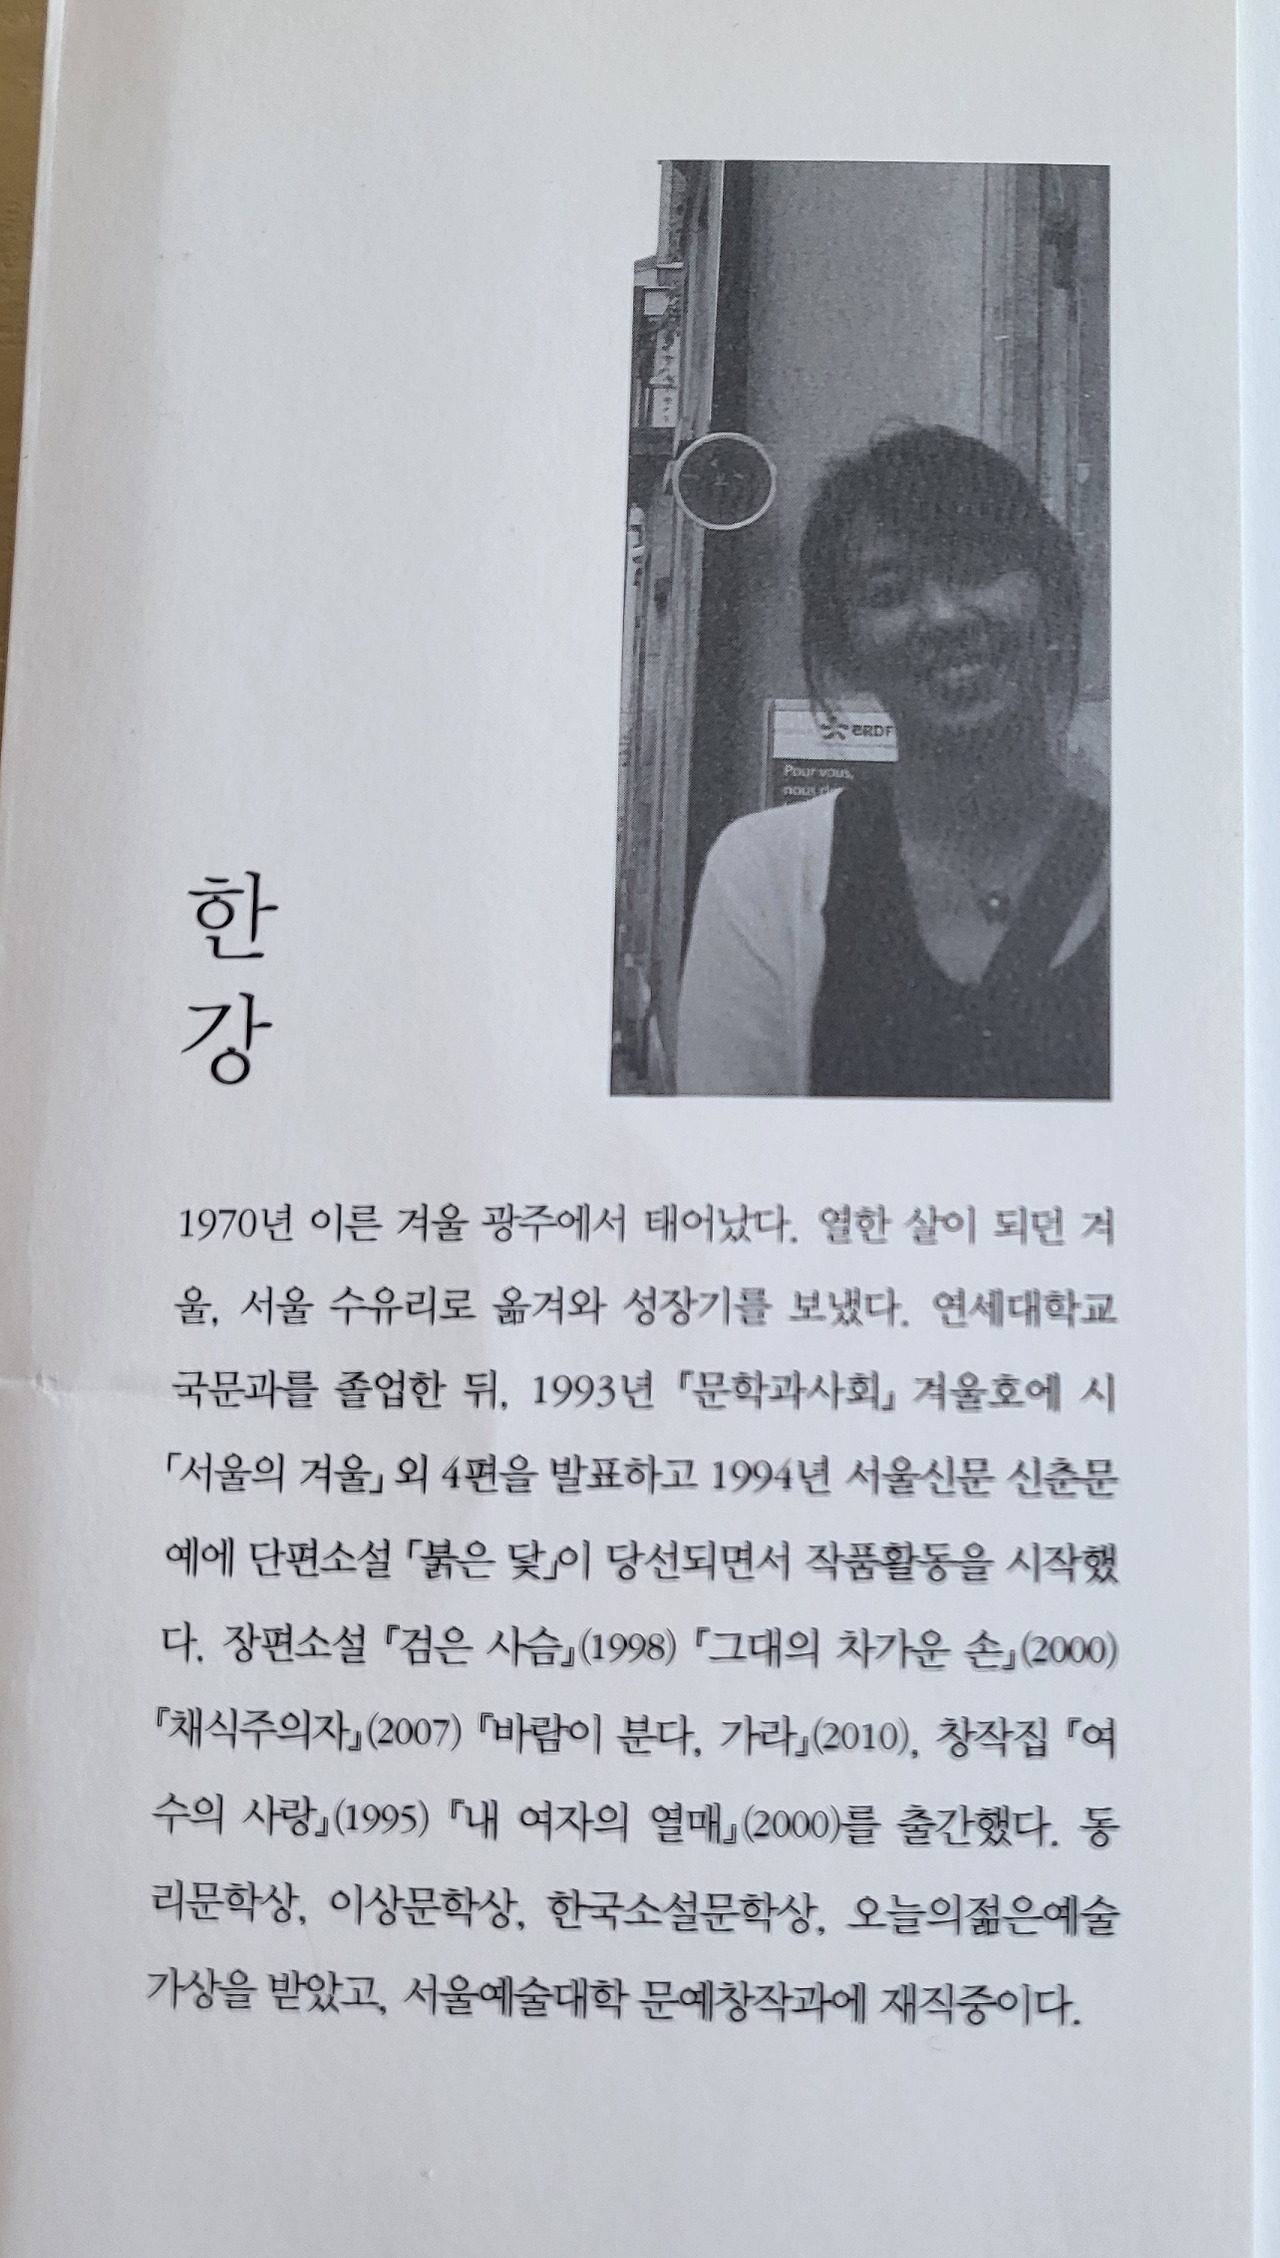 eRDF
Pour vous,
nous
한
강
1970년 이른 겨울 광주에서 태어났다. 열한 살이 되던 겨
울, 서울 수유리로 옮겨와 성장기를 보냈다. 연세대학교
국문과를 졸업한 뒤, 1993년 『문학과사회』 겨울호에 시
「서울의 겨울」 외 4편을 발표하고 1994년 서울신문 신춘문
예에 단편소설 「붉은 닻」이 당선되면서 작품활동을 시작했
다. 장편소설 『검은 사슴』(1998) 『그대의 차가운 손』(2000)
『채식주의자』(2007) 『바람이 분다, 가라』(2010), 창작집 『여
수의 사랑』(1995) 『내 여자의 열매』(2000)를 출간했다. 동
리문학상, 이상문학상, 한국소설문학상, 오늘의젊은예술
가상을 받았고, 서울예술대학 문예창작과에 재직중이다.